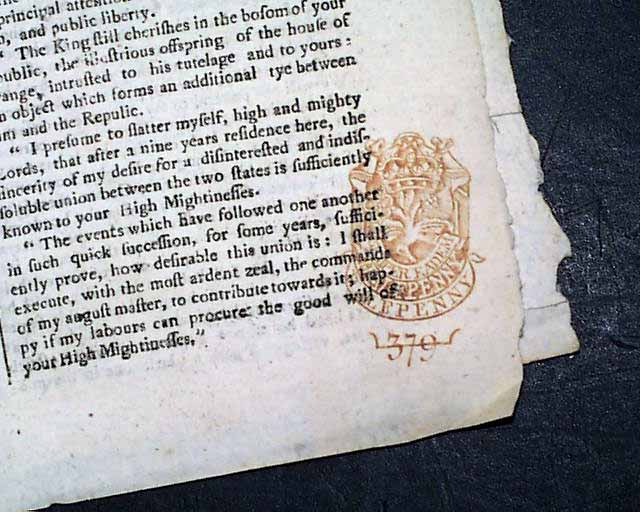 principal
, and public liberty.
“ The King ſtill cheriſhes in the boſom of your
public, the illuſtrious offspring of the houſe of
range, intruſted to his tutelage and to yours :
n object which forms an additional tye between
m and the Repulic.
“ I preſume to flatter myſelf, high and mighty
Lords, that after a nine years reſidence here, the
ſincerity of my deſire for a diſintereſted and indiſ-
ſoluble union between the two ſtates is ſufficiently
known to your High Mightineſſes.
“ The events which have followed one another
in ſuch quick ſucceſſion, for ſome years, ſuffici-
ently prove, how deſirable this union is : I ſhall
execute, with the moſt ardent zeal, the commands
of my auguſt maſter, to contribute towards it ; hap-
py if my labours can procure the good will of
your High Mightineſſes.”
PENNY
EPENNY
379